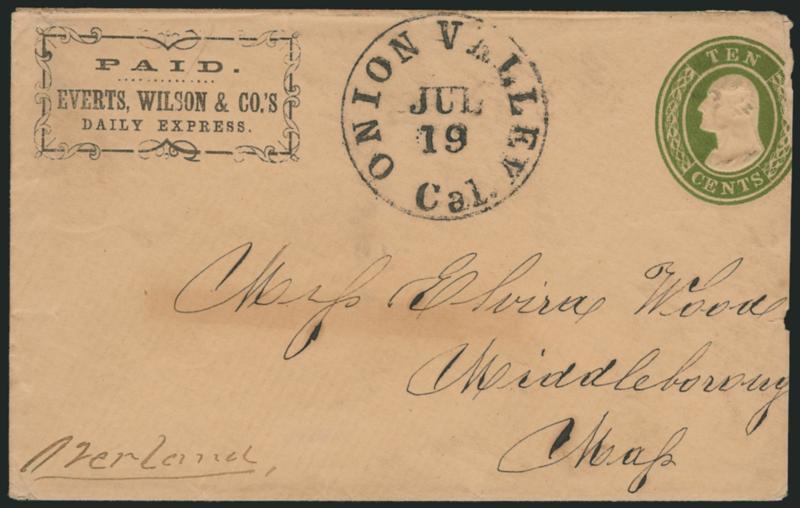 PAID.
EVERTS, WILSON & CO.'S
DAILY EXPRESS.
ONION VALLEY
JUL
19
Cal.
TEN
CENTS
Miſs Elvira Wood
Middleboroug
Maſs
Overland,